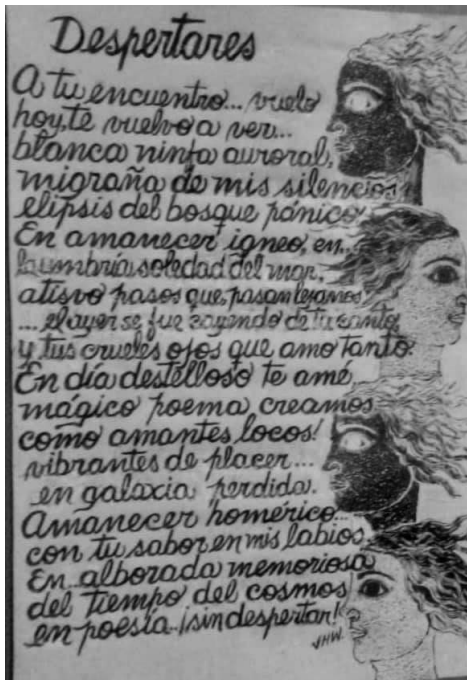 Despertares
A tu encuentro... vuelo
hoy, te vuelvo a ver...
blanca ninfa auroral,
migraña de mis silencios
elipsis del bosque pánico.
En amanecer ígneo, en..
la umbría soledad del mar,
atisvo pasos que, pasan lejanos
... el ayer se fue
y tus crueles ojos que amo tanto.
En día destelloso te amé,
mágico poema creamos
como amantes locos!
vibrantes de placer...
en galaxia perdida.
Amanecer homérico...
con tu sabor en mis labios
En alborada memoriosa
del tiempo del cosmos
en poesía.. ¡sin despertar!
JHW.